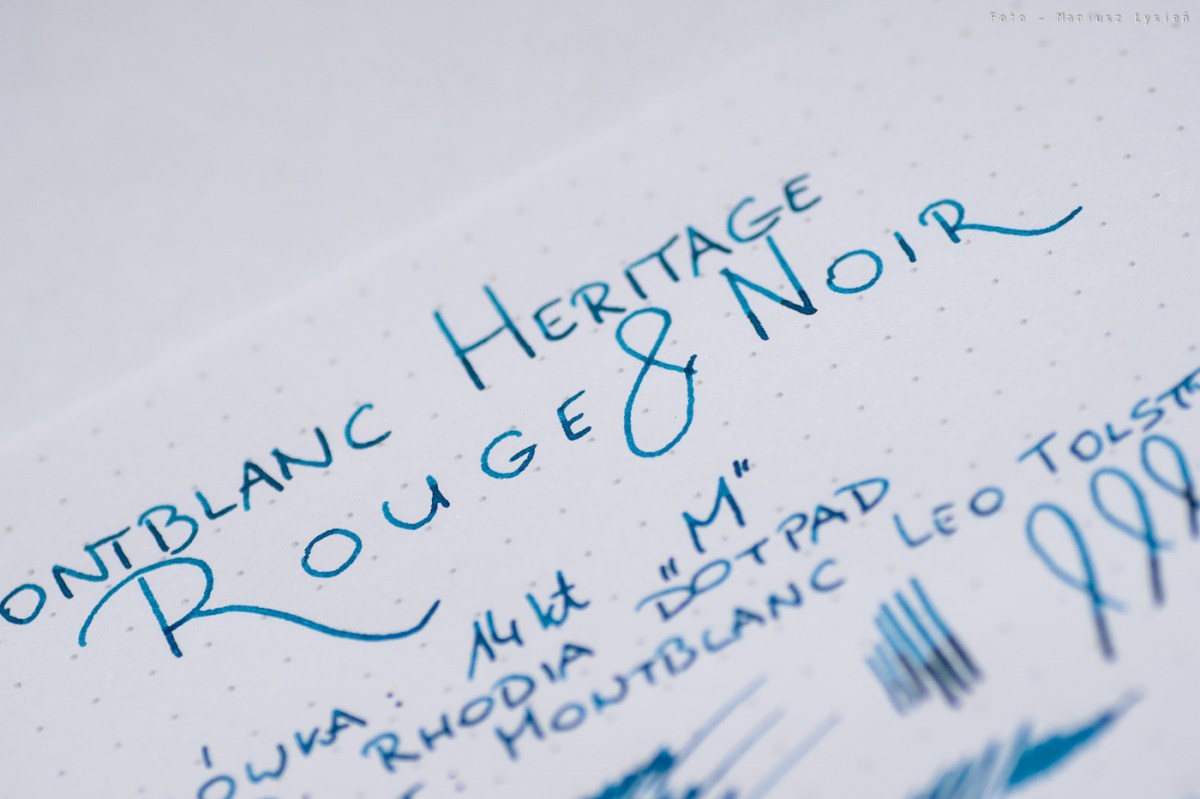 Foto - Mariusz Łysień
ONTBLANC HERITAGE
ROUGE & NOIR
ÓWKA: 14kt "M"
RHODIA DOTPAD
: MONTBLANC LEO TOLST